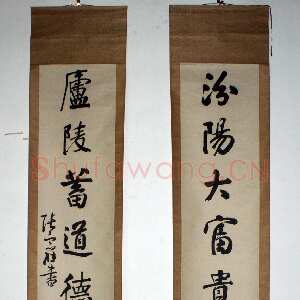 汾陽大富貴
廬陵蓄道德
Shufawang.CN